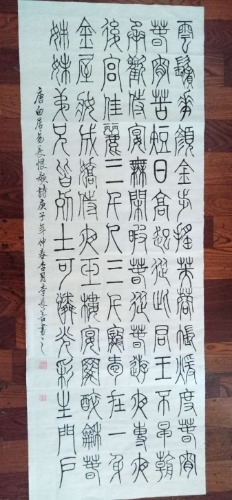 雲鬢華顏金步搖芙蓉帳暖度春宵
春宵苦短日高起從此君王不早朝
承歡侍宴無閒暇春從春遊夜專夜
後宮佳麗三千人三千寵愛在一身
金屋妝成嬌侍夜玉樓宴罷醉和春
姊妹弟兄皆列土可憐光彩生門戶
唐白居易長恨歌詩庚子年仲春書之